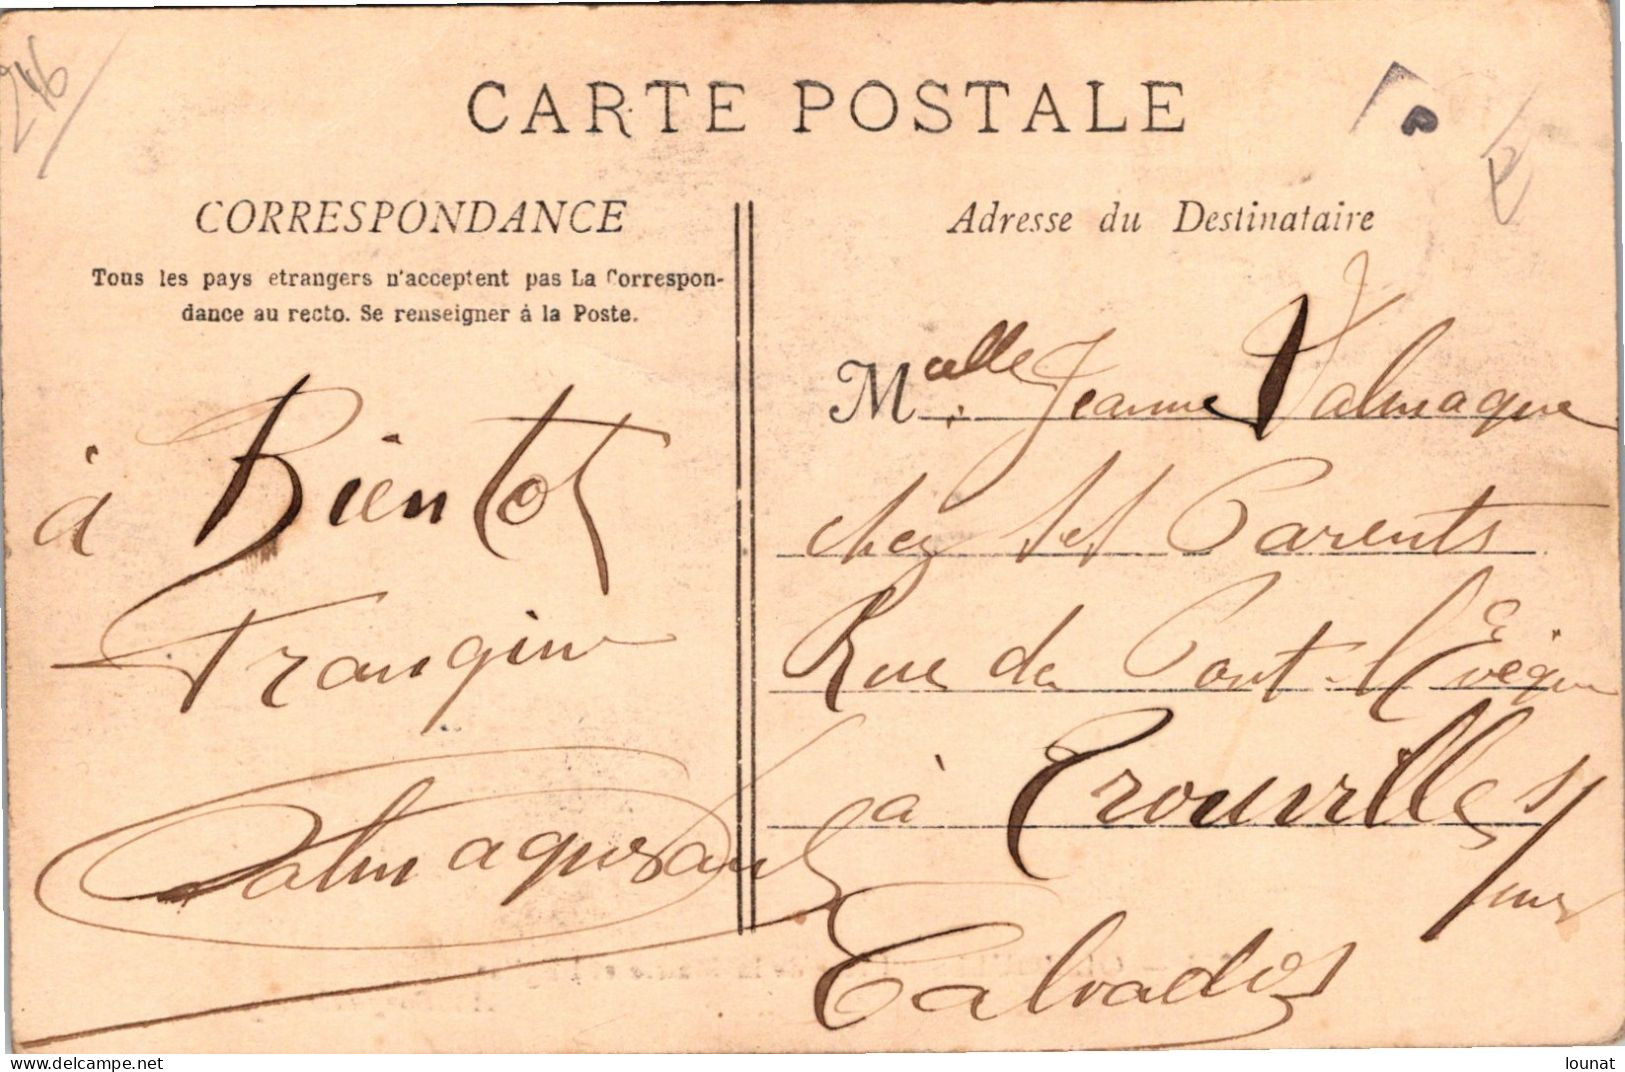 246
CARTE POSTALE
CORRESPONDANCE
Tous les pays etrangers n'acceptent pas La Correspon-
dance au recto. Se renseigner à la Poste.
à Bientot
Frangin
Adresse du Destinataire
Melle Jeanne Valmaque
chez ses Parents
Rue de Pont-l'Evèque
à Trouville s/ mer
Calvados
lounat